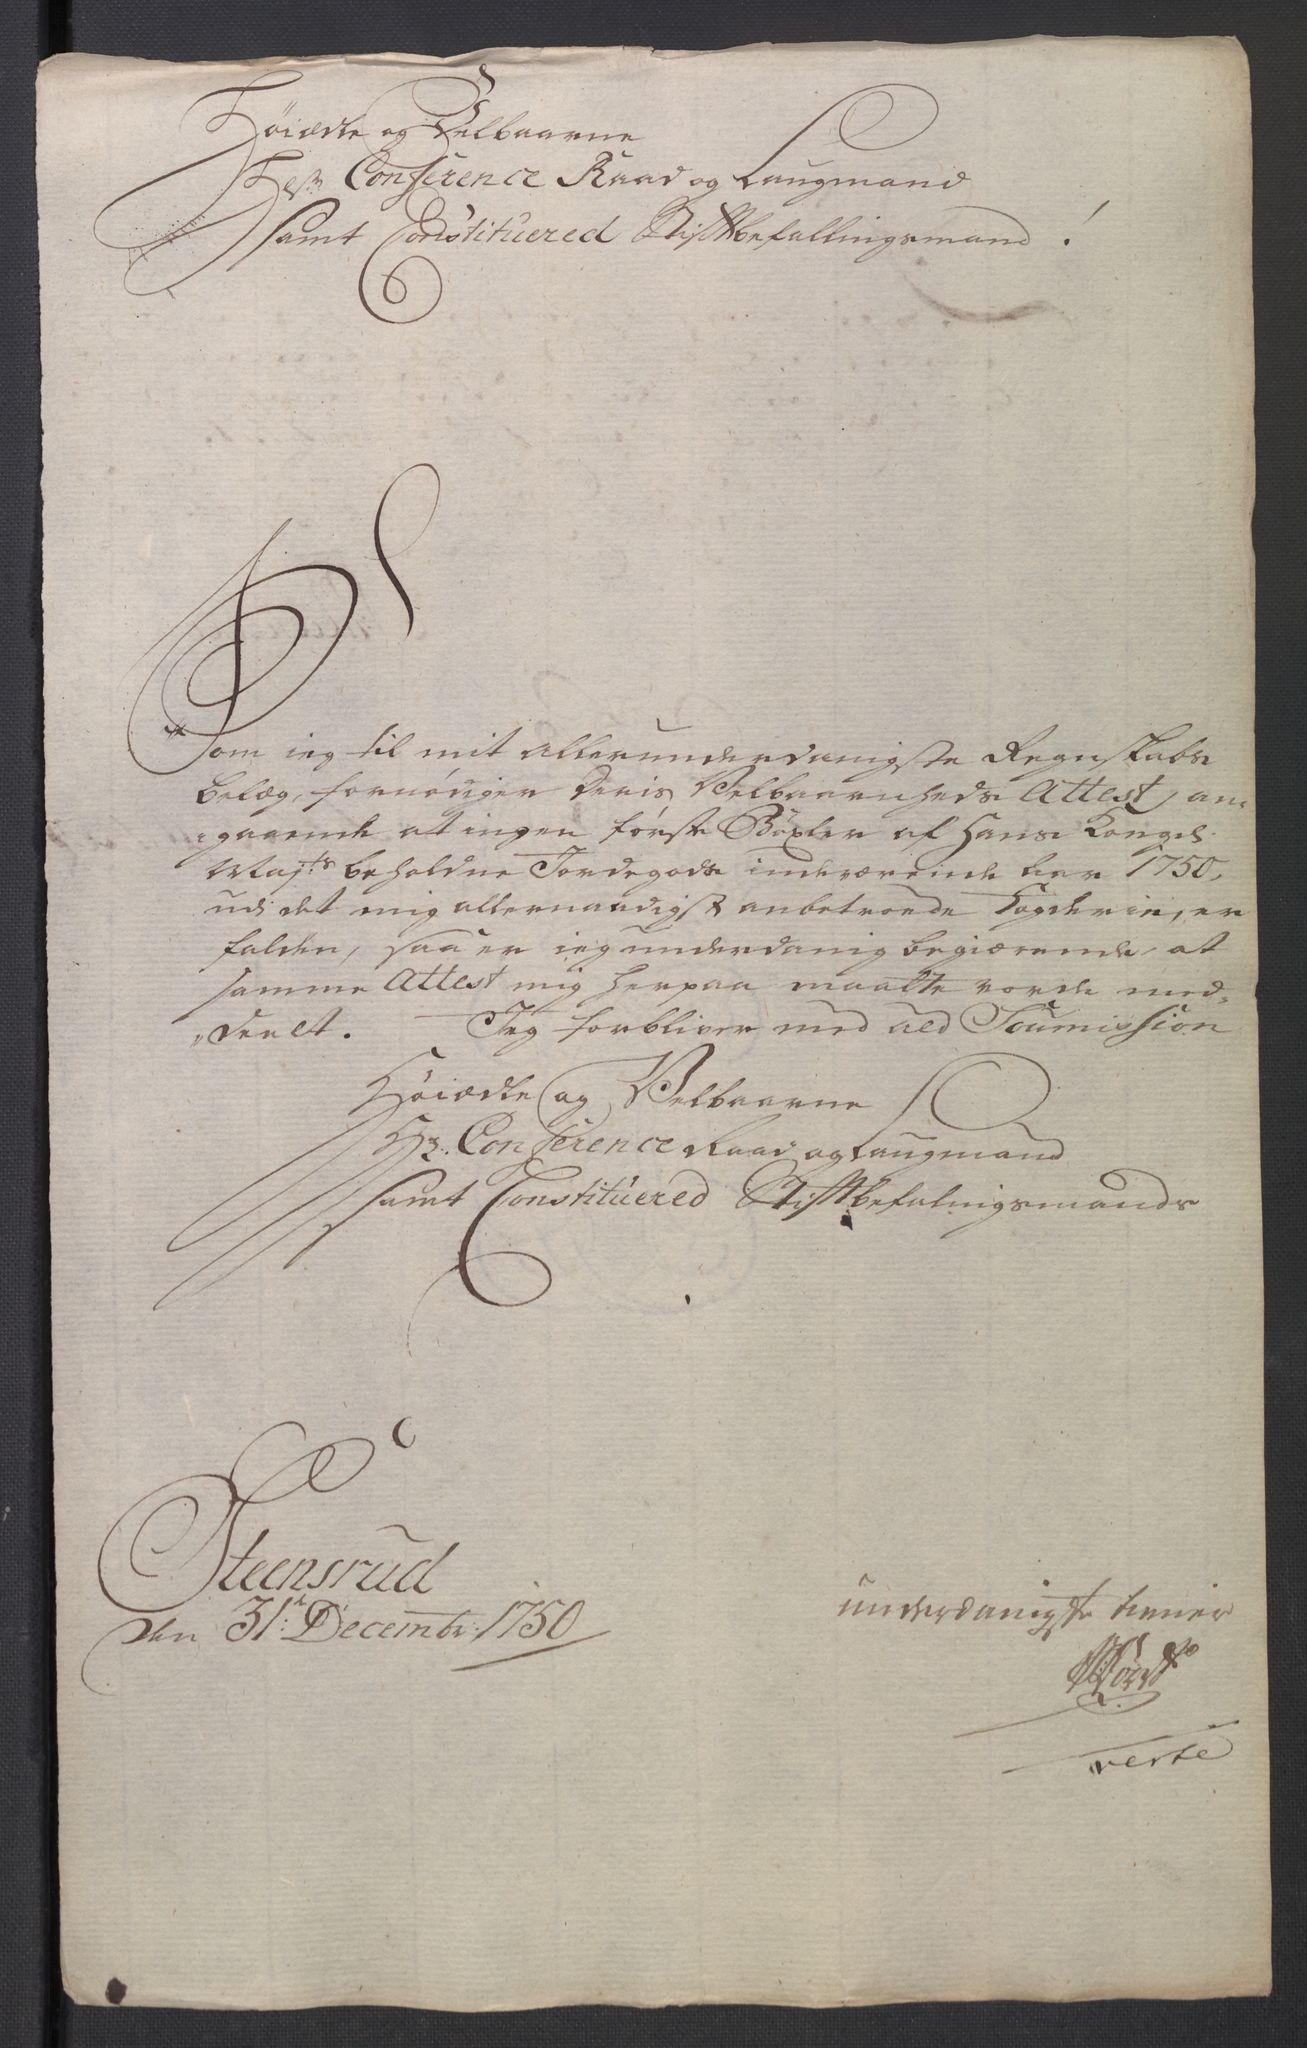 Höiædle og Velbaarne
Herr Conference Raad og Laugmand
samt Constituered Stiftbefallingsmand !
Som ieg til mit allerunderdanigste Regnskabs
belæg, fornöyger Deris Velbaarnheds Attest, an-
gaaende at ingen förste Böxler af Hans Kongel.
Majts beholdne Jordegods indeværende Aar 1750,
udi det mig allernaadigst anbetroede Fogderie, er
falden, saa er ieg underdanig begiærende, at
samme Attest mig herpaa maatte vorde med-
deelt. Jeg forbliver med all Soumission
Höiædle og Velbaarne
Hr. Conference Raad og Laugmand
samt Constituered Stiftbefalingsmands
Steensrud
den 31te Decembr: 1750
underdanigste tiener
verte